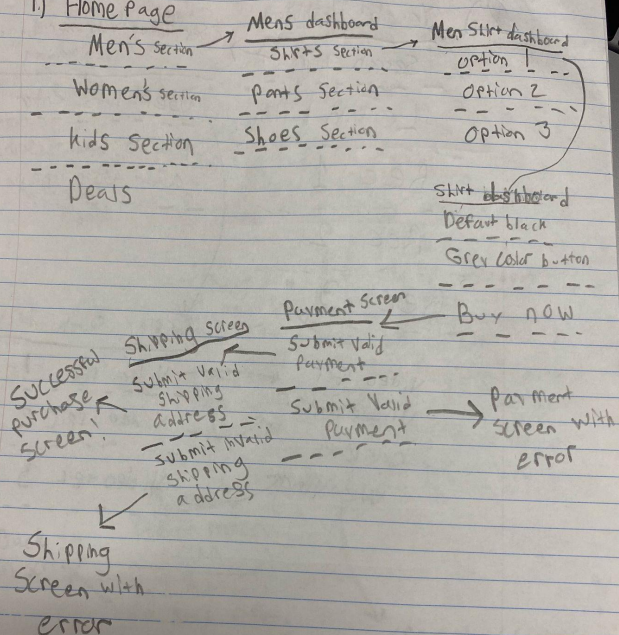 1.) Home Page
Men's Section
Women's Section
Kids Section
Deals
Mens dashboard
Shirts Section
Pants Section
Shoes Section
Men Shirt dashboard
Option 1
Option 2
Option 3
Shirt dashboard
Defaut black
Grey Color button
Buy now
Payment Screen
Submit Valid
Payment
Submit Valid
Payment
Payment
Screen with
error
Shipping Screen
Submit Valid
Shipping
address
Submit invalid
Shipping
address
Successful
purchase
Screen!
Shipping
Screen with
error